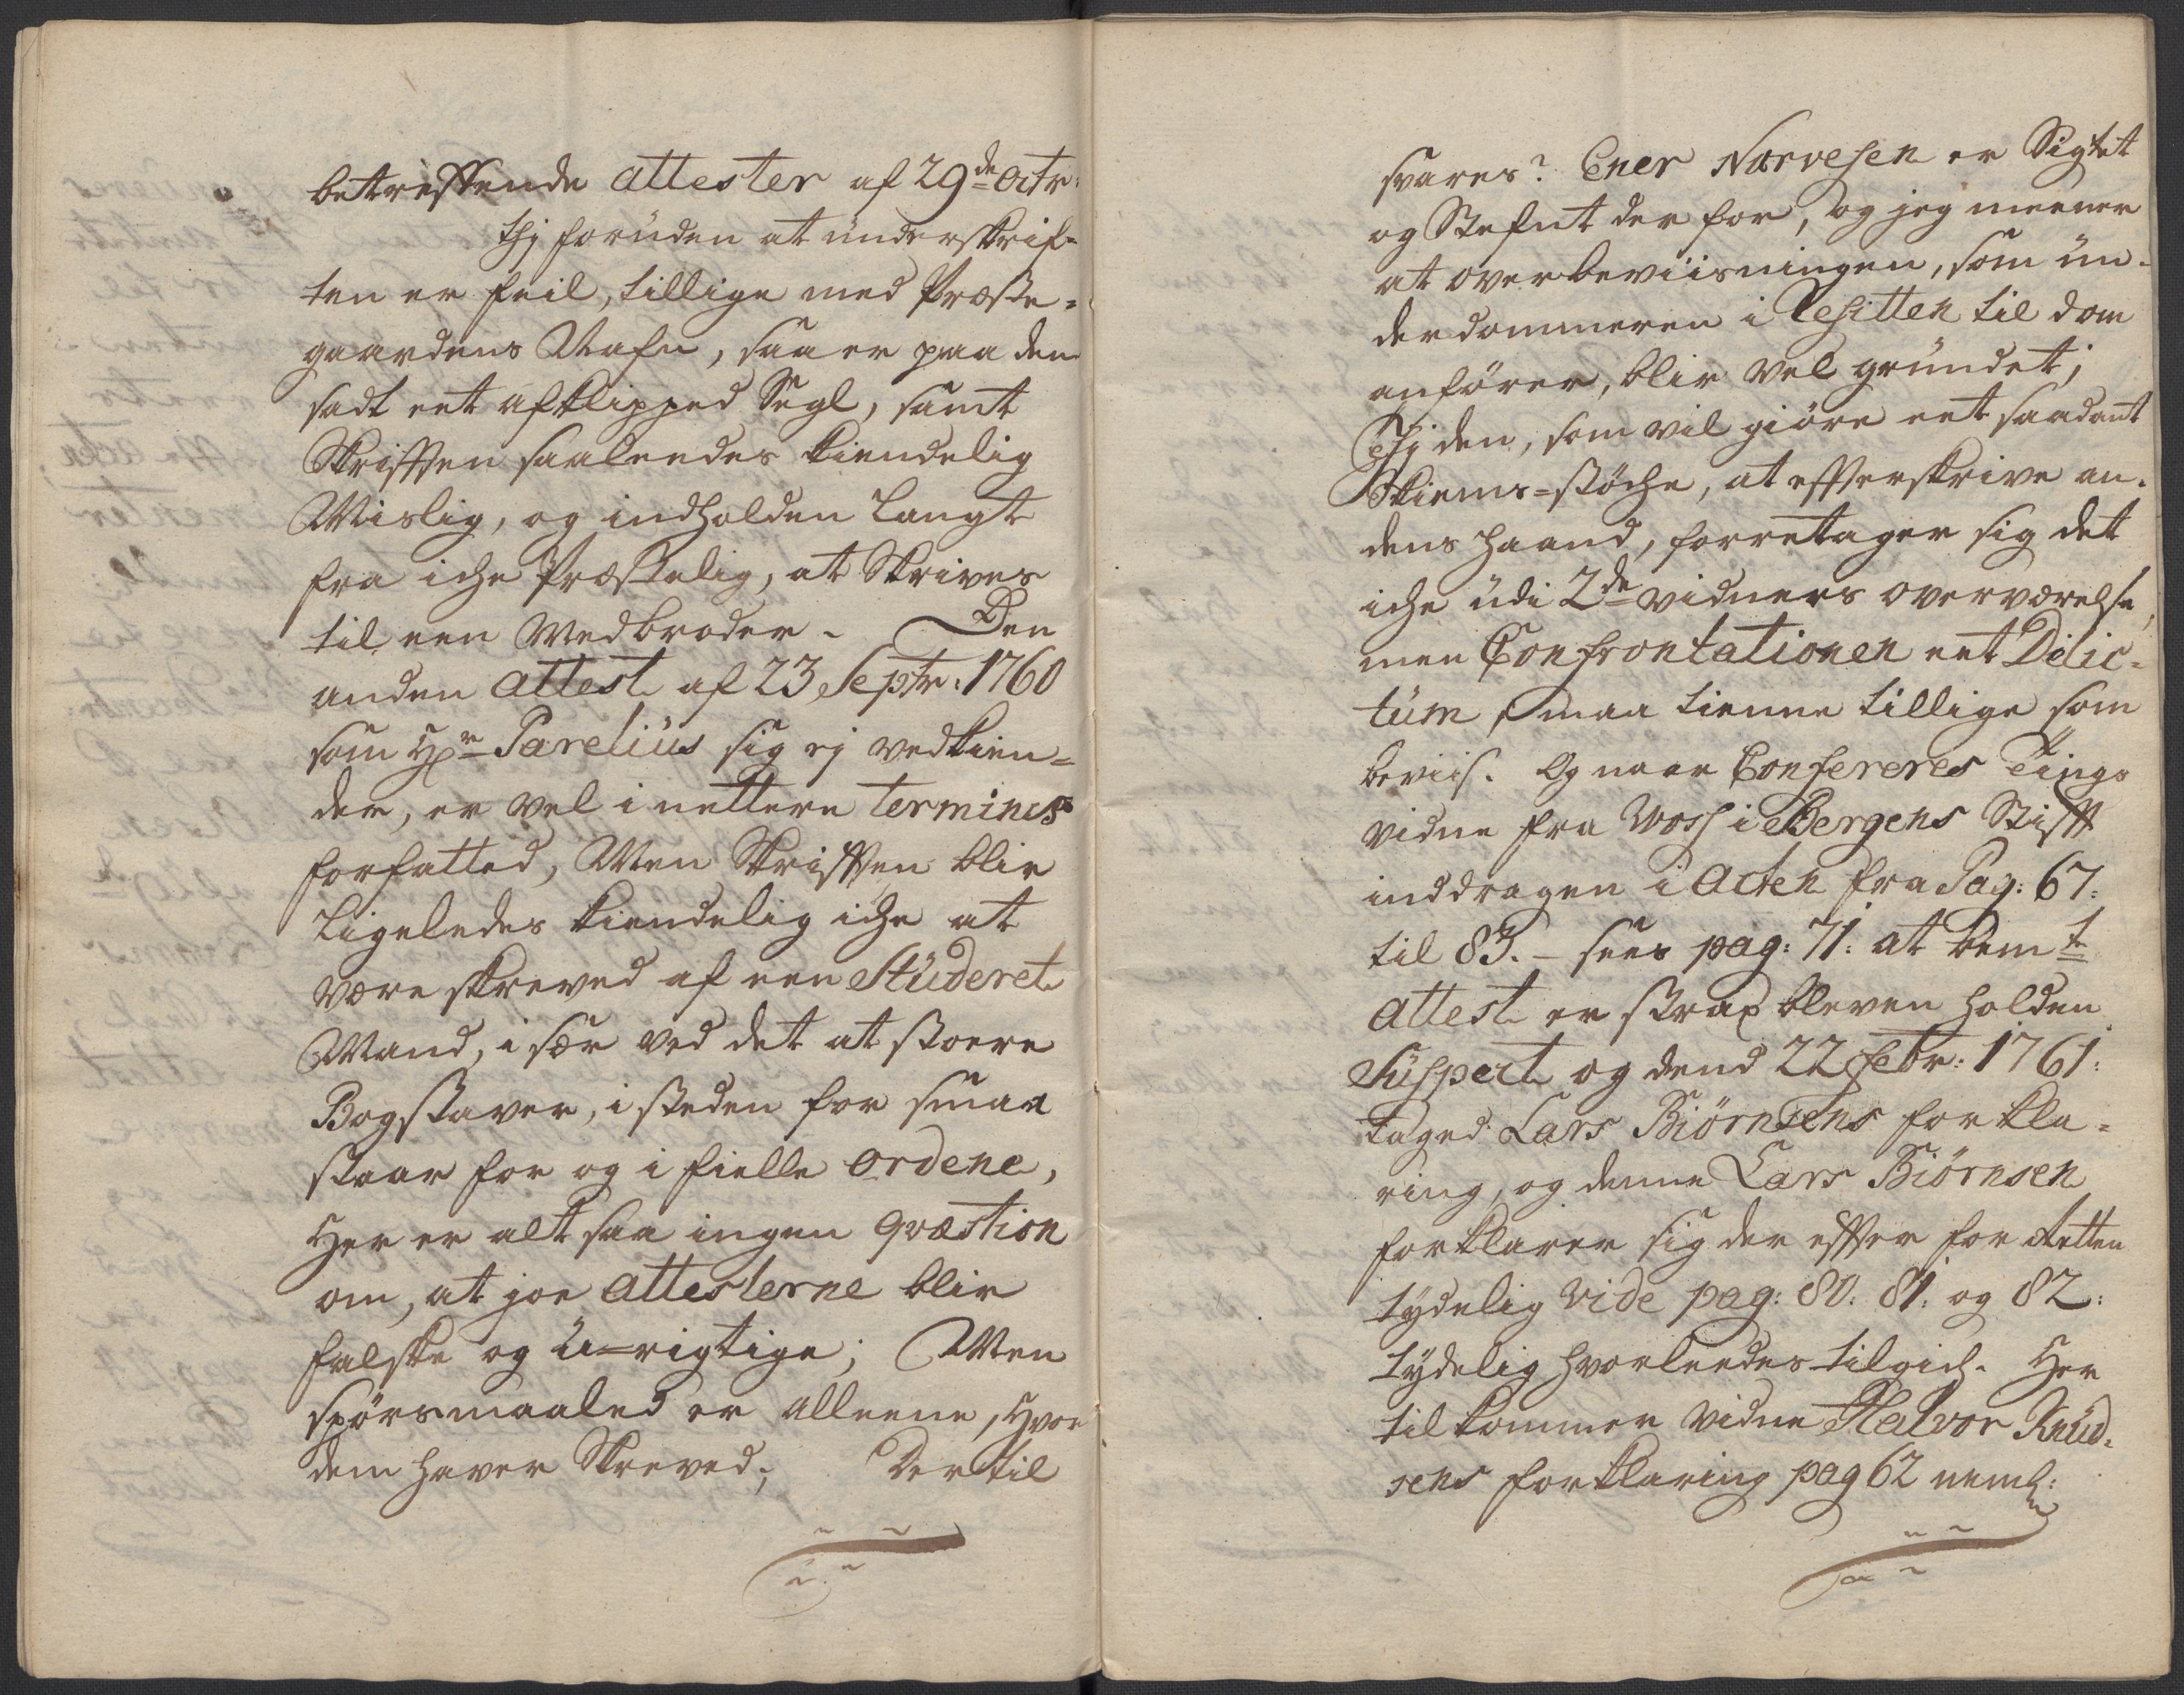 betreffende attester af 29de octr:
thj foruden at underskrif=
ten er feil, tillige med Præste=
gaardens Nafn, saa er paa den
sadt eet afklipped Segl, samt
Skriften saaleedes kiendelig
Mislig, og indholden langt
fra iche Præstelig, at Skrives
til een Medbroder. Den
anden attest af 23 Septr: 1760
som Hr Parelius sig ej vedkien=
der, er vel i nettere terminis
forfatted, Men Skriften blir
Ligeledes kiendelig iche at
være skreved af een Studeret
Mand, i sær ved det at stoere
Bogstaver, i steden for smaa
staar for og i fielle ordene,
Her er alt saa ingen qvæstion
om, at joe attesterne blir
falske og U=rigtige; Men
spörsmaaled er alleene, Hvor
dem haver Skreved; Dertil
svares? Ener Norvesen er Sigtet
og Stefnt der for, og jeg meener
at overbeviisningen, som un=
derdommeren i Resitten til dom
anförer, blir vel grundet;
Thj den, som vil giöre eet saadant
Skiems=stöche, at efterskrive an=
dens haand, forretager sig det
iche udi 2de vidners overværelse,
men Confrontationen eet Delic=
tum, maa tienne tillige som
beviis. Og naar Confereres Tings
vidne fra Woss i Bergens Stift
inddragen i acten fra Pag: 67:
til 83. – sees pag: 71: at bemte
attest er strax bleven holden
Suspect og dend 22 febr: 1761:
taged Lars Biörnsens forkla=
ring, og denne Lars Biörnsen
forklarer sig der efter for Retten
tydelig vide pag: 80: 81: og 82:
tydelig hvorleedes tilgich. Her
til kommer vidne Halvor Knud=
sens forklaring pag 62 neml: